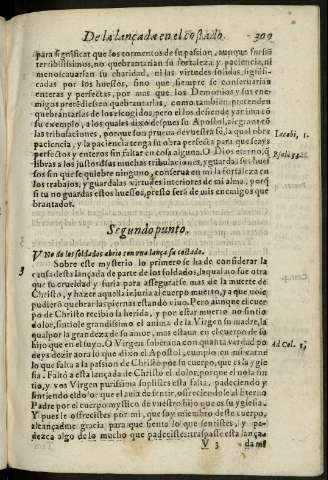 De la lançada en el costado. 309
para significar que los tormentos de su passion, aunque fuessẽ
terribilissimos, no quebrantarian su fortaleza y paciencia, ni
menoscauarian su charidad, ni las virtudes solidas, signifi-
cadas por los huessos, sino que siempre se conseruarian
enteras y perfectas, por mas que los Demonios y sus ene-
migos pretendiessen quebrantarlas, como tambien pretenden
quebrantarlas de los escogidos, pero el los defiende y arma cõ
su exemplo, a los quales dixo despues su Apostol, alegraos en
las tribulaciones, porque son prueua de vuestra fè, la qual obra
paciencia, y la paciencia tenga su obra perfecta para que seays
perfectos y enteros sin faltar en cosa alguna. O Dios eterno, q̃
libras a los justos de sus muchas tribulaciones, y guardas sus hues
sos sin que se quiebre ninguno, conserua en mi la fortaleza en
los trabajos, y guarda las virtudes interiores de mi alma, porq̃
si tu no guardas estos huessos, presto serà de mis enemigos que
brantados.
Iacobi, 1.
Psal. 33.
Segundo punto.
VNo de los soldados abrio con vna lança su costado.
Sobre este mysterio lo primero se ha de considerar la
3
causa desta lançada de parte de los soldados, la qual no fue otra
que su crueldad y furia para assegurarse mas de la muerte de
Christo, y hazer aquella injuria al cuerpo muerto, ya que no le
pudierõ quebrar las piernas estando viuo. Pero aunque el cuer
po de Christo recibio la herida, y por estar muerto no sintio
dolor, sintiole grandissimo el anima de la Virgen su madre, la
qual por la grandeza de su amor, mas estaua en el cuerpo de su
hijo que en el suyo. O Virgen soberana con quanta verdad po
deys dezir aora lo que dixo el Apostol, cumplo en mi carne
lo que falta a la passion de Christo por su cuerpo, que es la ygle
sia. Faltò a esta lançada de Christo el dolor, porque el no la sin
tio, y vos Virgen purissima suplistes esta falta, padeciendo y
sintiendo el dolor que el auia de sentir, ofreciendole al Eterno
Padre por el cuerpo mystico de vuestro hijo que es su yglesia.
Ad Col. 1.
Y pues le ofrecistes por mi, que soy miembro deste cuerpo,
alcançadme gracia para que sienta lo que sentistes, y pa-
dezca algo de lo mucho que padecistes: traspasse esta lança
V 3